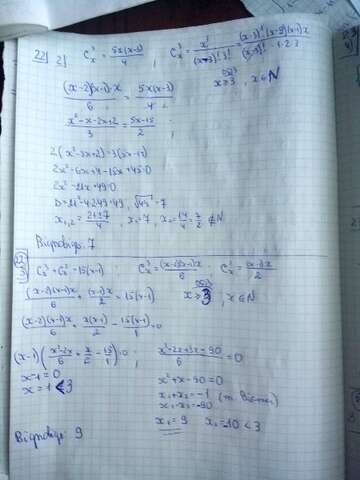 22) 2) C_x^3 = 5x(x-3)/4 ; C_x^3 = x!/((x-3)! 3!) = (x-3)!(x-2)(x-1)x/((x-3)! · 1·2·3
(x-2)(x-1)·x/6 = 5x(x-3)/4 ; ОДЗ: x≥3, x∈N
x²-x-2x+2/3 = 5x-15/2 ;
2(x²-3x+2)=3(5x-15)
2x²-6x+4-15x+45=0
2x²-21x+49=0
D=21²-4·2·49=49, √49=7
x₁,₂ = 21±7/4 , x₁=7, x₂=14/4=7/2 ∉N
Відповідь: 7
22) 3) C_x^3+C_x^2=15(x-1) ; C_x^3=(x-2)(x-1)x/6 ; C_x^2=(x-1)x/2
(x-2)(x-1)x/6 + (x-1)x/2 = 15(x-1) ОДЗ: x≥3, x∈N
(x-2)(x-1)x/6 + x(x-1)/2 - 15(x-1)/1 = 0
(x-1)(x²-2x/6 + x/2 - 15/1)=0 ; x²-2x+3x-90/6=0
x-1=0 x²+x-90=0
x=1<3 x₁+x₂=-1 (т. Вієта)
x₁·x₂=-90
x₁=9 x₂=-10<3
Відповідь: 9